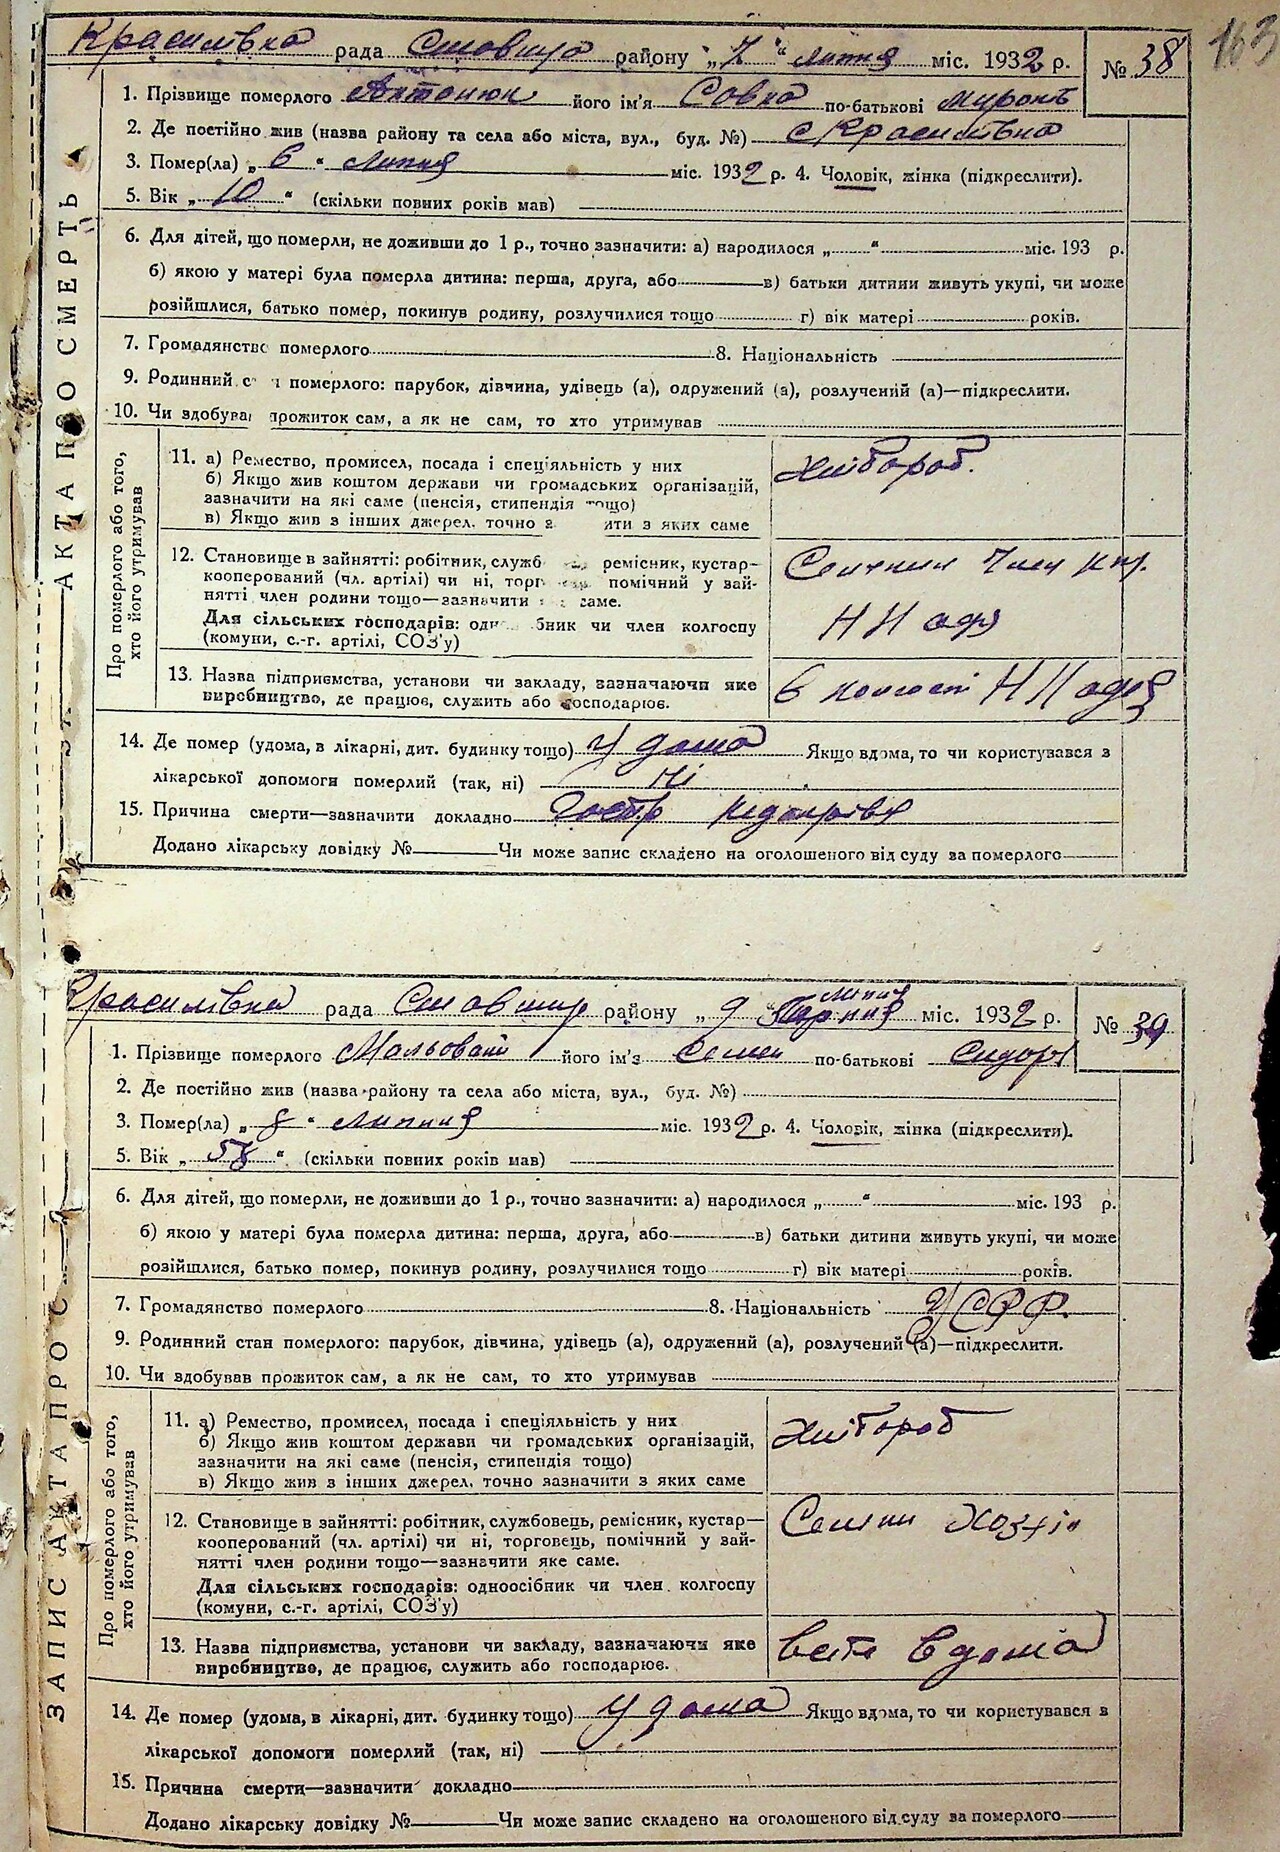 163
Красилівка рада Ставище району „7" липня міс. 1932 р. № 38
1. Прізвище померлого Антонюк його ім'я Совка по-батькові Мирон
2. Де постійно жив (назва району та села або міста, вул., буд. №) с Красилівка
3. Помер(ла) „6" липня міс. 1932 р. 4. Чоловік, жінка (підкреслити).
5. Вік „10" (скільки повних років мав)
6. Для дітей, що померли, не доживши до 1 р., точно зазначити: а) народилося „ " міс. 193 р.
б) якою у матері була померла дитина: перша, друга, або в) батьки дитини живуть укупі, чи може
розійшлися, батько помер, покинув родину, розлучилися тощо г) вік матері років.
7. Громадянство померлого 8. Національність
9. Родинний с н померлого: парубок, дівчина, удівець (а), одружений (а), розлучений (а)—підкреслити.
10. Чи здобував прожиток сам, а як не сам, то хто утримував
ЗАПИС АКТА ПРО СМЕРТЬ
Про померлого або того,
хто його утримував
11. а) Ремество, промисел, посада і спеціяльність у них
б) Якщо жив коштом держави чи громадських організацій,
зазначити на які саме (пенсія, стипендія тощо)
в) Якщо жив з інших джерел, точно з ити з яких саме
хлібороб.
12. Становище в зайнятті: робітник, служб ремісник, кустар—
кооперований (чл. артілі) чи ні, торг помічний у зай-
нятті член родини тощо—зазначити саме.
Для сільських господарів: одн бник чи член колгоспу
(комуни, с.-г. артілі, СОЗ'у)
член
13. Назва підприємства, установи чи закладу, зазначаючи яке
виробництво, де працює, служить або господарює.
в колгоспі
14. Де помер (удома, в лікарні, дит. будинку тощо) у дома Якщо вдома, то чи користувався з
лікарської допомоги померлий (так, ні) Ні
15. Причина смерти—зазначити докладно
Додано лікарську довідку № Чи може запис складено на оголошеного від суду за померлого
Красилівка рада району „9 липня міс. 1932 р. № 39
1. Прізвище померлого Мальований його ім'я Семен по-батькові Сидор
2. Де постійно жив (назва району та села або міста, вул., буд. №)
3. Помер(ла) „8" липня міс. 1932 р. 4. Чоловік, жінка (підкреслити).
5. Вік „58" (скільки повних років мав)
6. Для дітей, що померли, не доживши до 1 р., точно зазначити: а) народилося „ " міс. 193 р.
б) якою у матері була померла дитина: перша, друга, або в) батьки дитини живуть укупі, чи може
розійшлися, батько помер, покинув родину, розлучилися тощо г) вік матері років.
7. Громадянство померлого 8. Національність УСРР.
9. Родинний стан померлого: парубок, дівчина, удівець (а), одружений (а), розлучений (а)—підкреслити.
10. Чи здобував прожиток сам, а як не сам, то хто утримував
ЗАПИС АКТА ПРО С
Про померлого або того,
хто його утримував
11. а) Ремество, промисел, посада і спеціяльність у них
б) Якщо жив коштом держави чи громадських організацій,
зазначити на які саме (пенсія, стипендія тощо)
в) Якщо жив з інших джерел, точно зазначити з яких саме
хлібороб
12. Становище в зайнятті: робітник, службовець, ремісник, кустар—
кооперований (чл. артілі) чи ні, торговець, помічний у зай-
нятті член родини тощо—зазначити яке саме.
Для сільських господарів: одноосібник чи член колгоспу
(комуни, с.-г. артілі, СОЗ'у)
13. Назва підприємства, установи чи закладу, зазначаючи яке
виробництво, де працює, служить або господарює.
вдома
14. Де помер (удома, в лікарні, дит. будинку тощо) у дома Якщо вдома, то чи користувався з
лікарської допомоги померлий (так, ні)
15. Причина смерти—зазначити докладно
Додано лікарську довідку № Чи може запис складено на оголошеного від суду за померлого